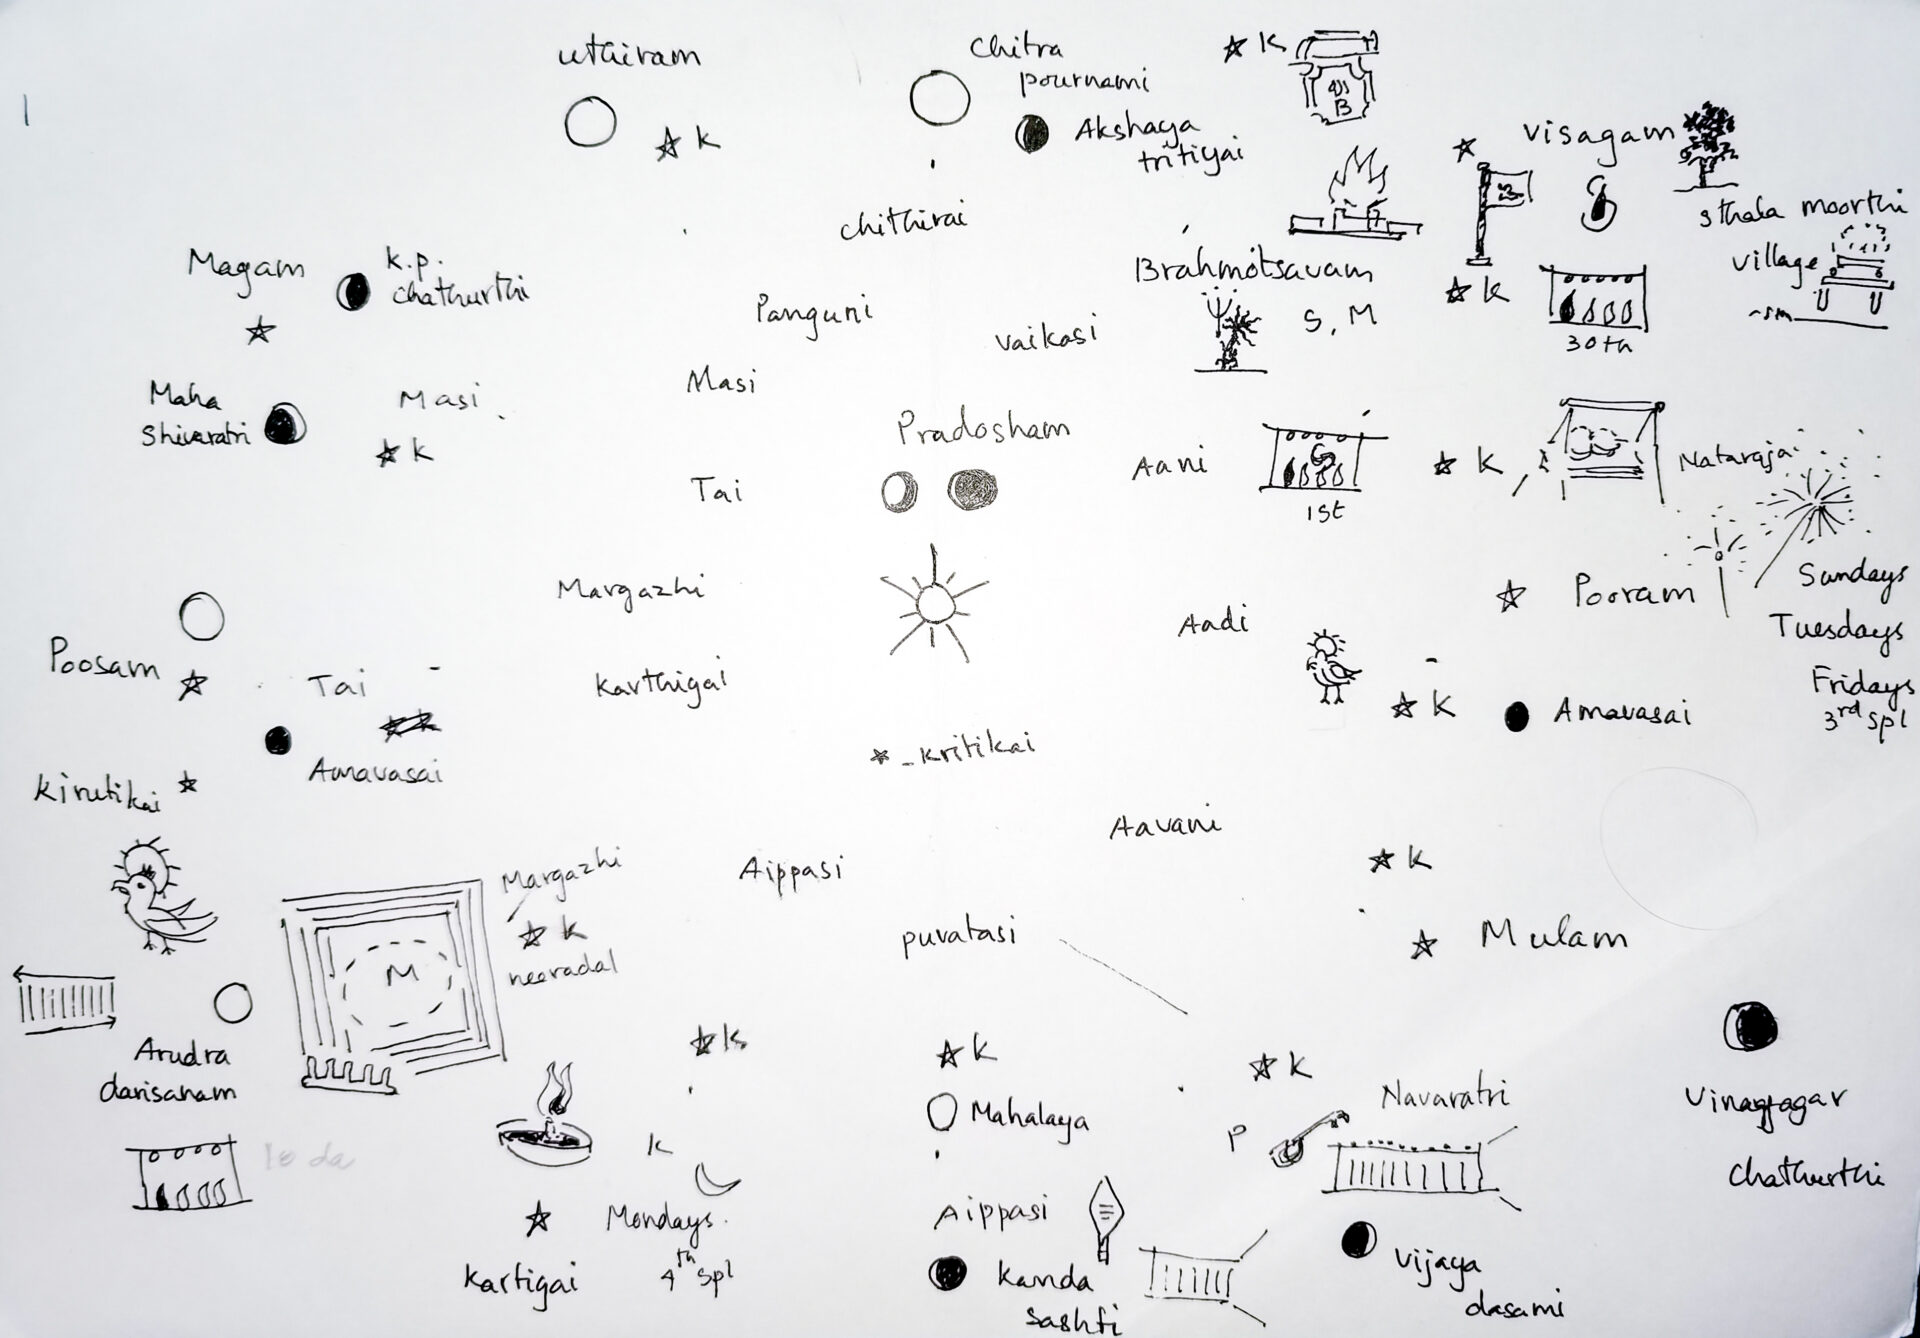 uthiram
K
chitra
pournami
Akshaya
tritiyai
K
B
visagam
sthala moorthi
village
chithirai
Magam
K.P.
chathurthi
Panguni
vaikasi
Brahmotsavam
S, M
K
30th
Masi
Maha
Shivaratri
Masi
K
Pradosham
Tai
Aani
1st
K
Nataraja
Margazhi
Aadi
Pooram
Sundays
Tuesdays
Fridays
3rd spl
Poosam
Tai
Amavasai
Karthigai
K
Amavasai
Kirutikai
- Kritikai
Aavani
K
Margazhi
K
neeradal
M
Aippasi
puratasi
Mulam
Arudra
darisanam
K
K
K
Mahalaya
Navaratri
P
Vinayagar
chathurthi
K
Mondays
4th spl
Kartigai
Aippasi
Kanda
sashti
Vijaya
dasami